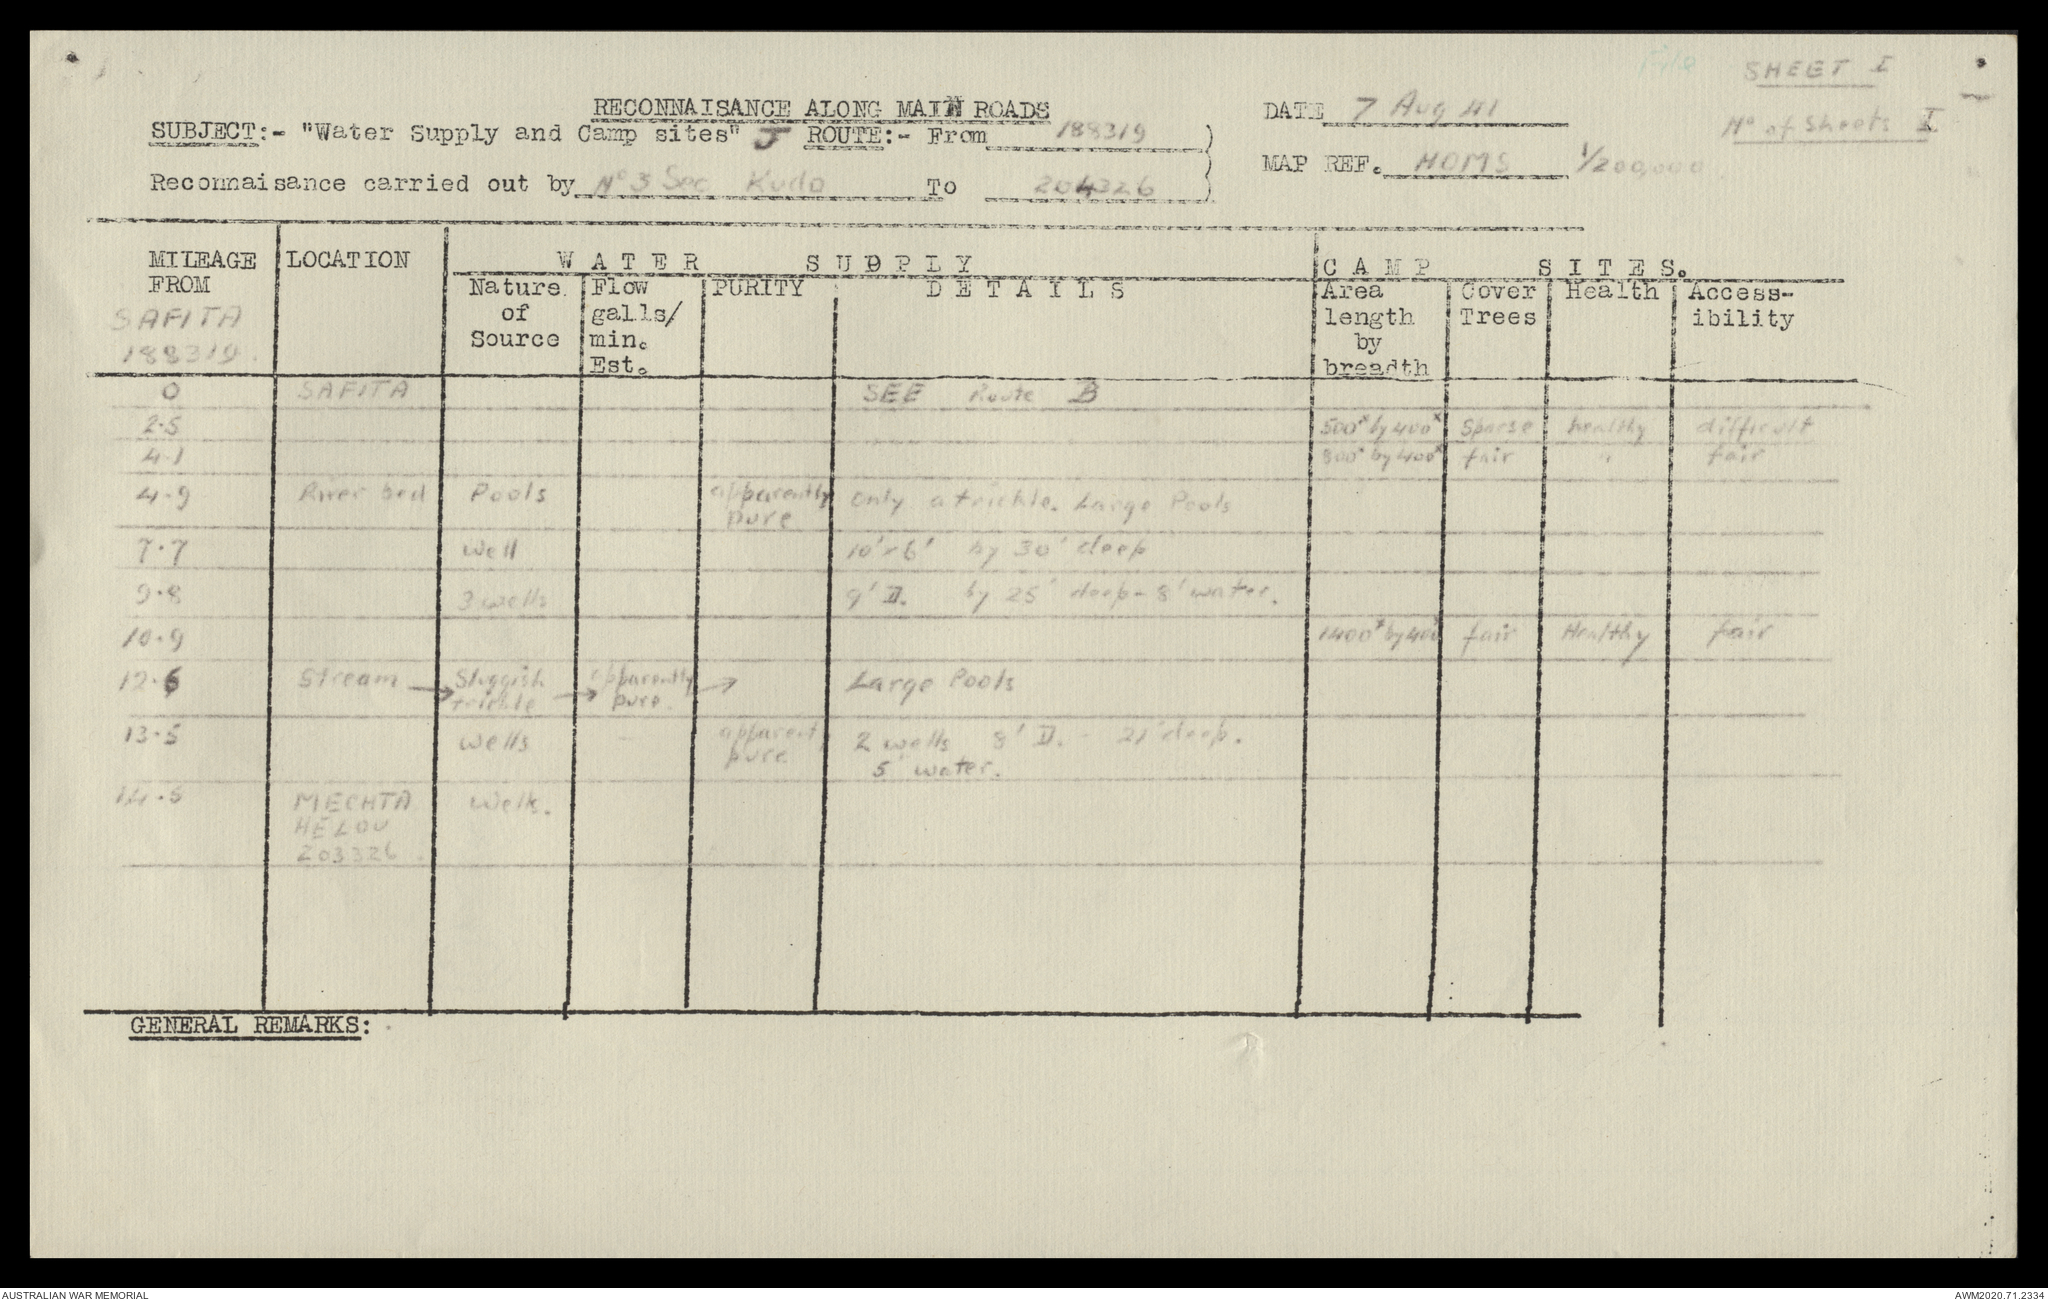 File SHEET I
RECONNAISANCE ALONG MAIN ROADS DATE 7 Aug 41
SUBJECT:- "Water Supply and Camp sites" J ROUTE:- From 188319 ) No of Sheets I
Reconnaisance carried out by No 3 Sec Kudo To 204326 ) MAP REF. HOMS 1/200,000
MILEAGE LOCATION W A T E R S U P P L Y C A M P S I T E S.
FROM Nature Flow PURITY D E T A I L S Area Cover Health Access-
SAFITA of galls/ length Trees ibility
188319. Source min. by
Est. breadth
0 SAFITA SEE Route B
2.5 500x by 400x Sparse healthy difficult
4.1 800x by 400x fair " fair
4.9 River bed Pools apparently only a trickle. Large Pools
pure
7.7 Well 10' x 6' by 30' deep
9.8 3 wells 9' D. by 25' deep - 8' water.
10.9 1400x by 400x fair Healthy fair
12.6 Stream → Sluggish → apparently → Large Pools
trickle pure.
13.5 wells - apparent 2 wells 8' D. - 21' deep.
pure 5' water.
14.5 MECHTA Wells.
HELOU
203326.
GENERAL REMARKS:
AUSTRALIAN WAR MEMORIAL AWM2020.71.2334